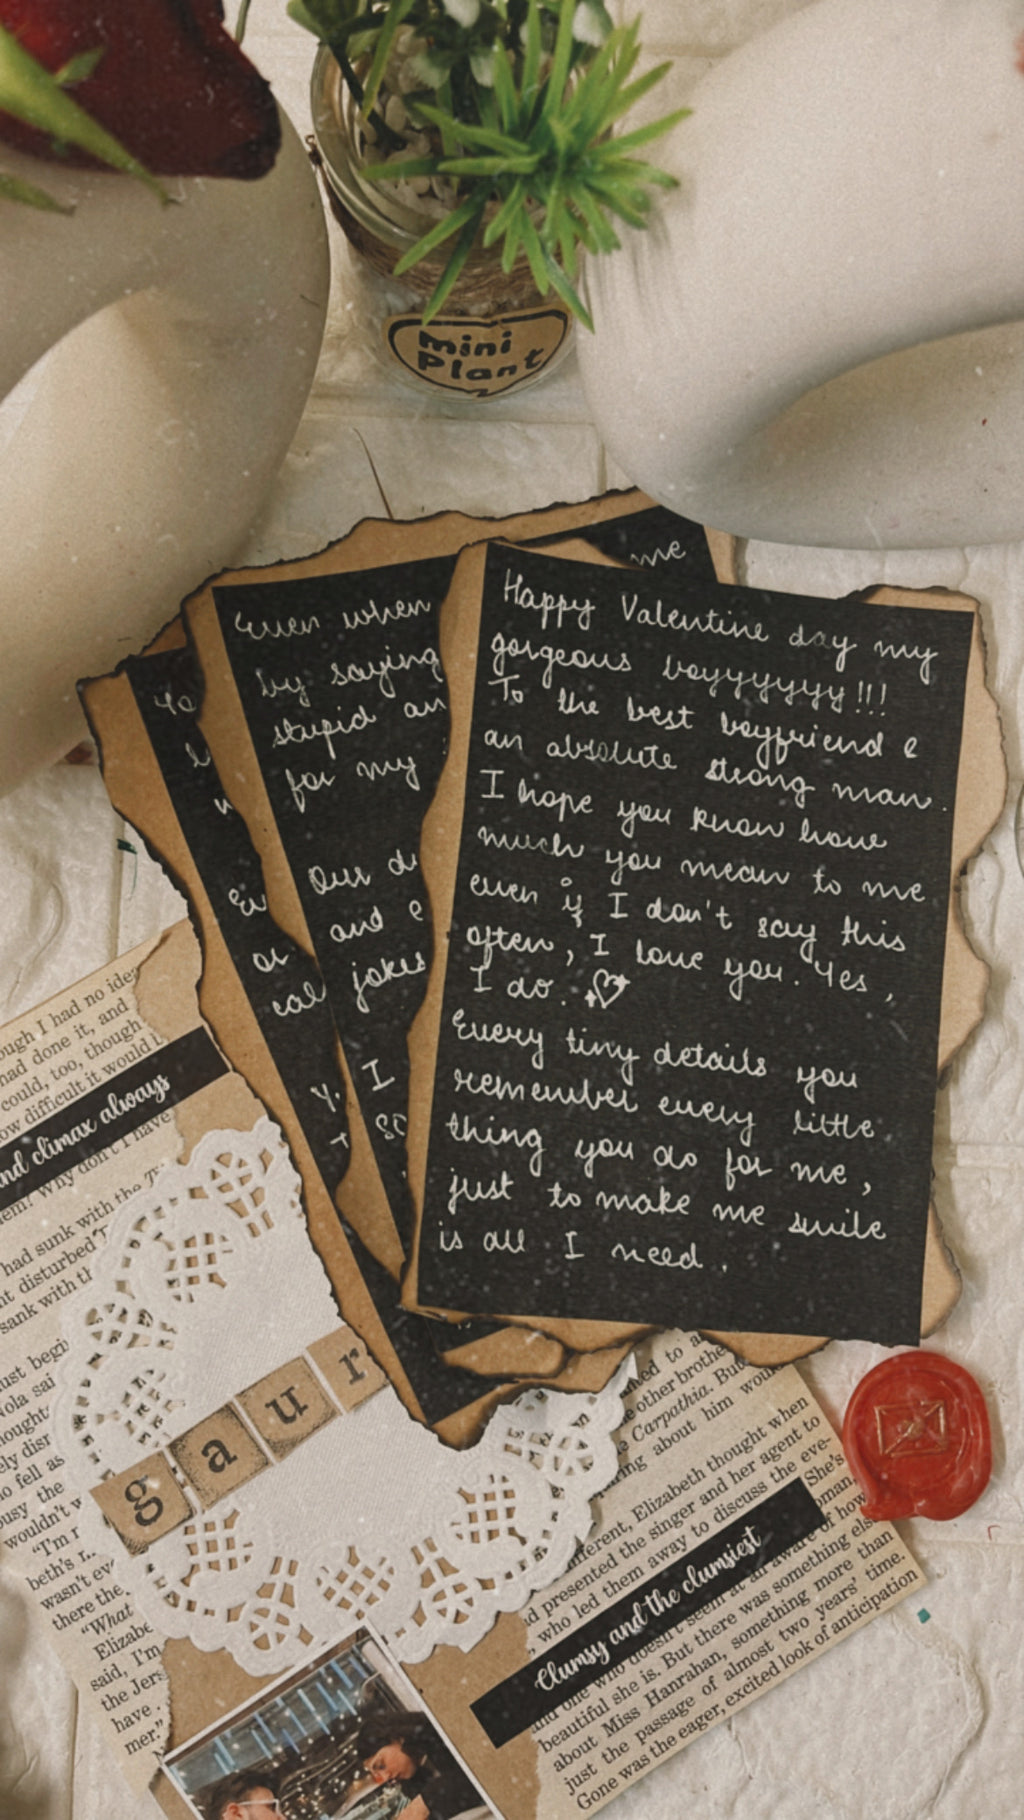 mini
Plant
me
Happy Valentine day my
gorgeous boyyyyyyy!!!
To the best boyfriend &
an absolute strong man.
I hope you know how
much you mean to me
even if I don't say this
often, I love you. Yes,
I do.
Every tiny details you
remember every little
thing you do for me,
just to make me smile
is all I need.
Even when
by saying
stupid an
for my
Our d
and e
jokes
I
so
Yo
Ev
or
cal
y.
ough I had no ide
had done it, and
could, too, though
ow difficult it would b
nd climax always
em? Why don't I have
had sunk with the
nt disturbed
sank with th
ust begi
Nola sai
hought
ely disr
o fell as
busy the
wouldn't w
"I'm r
beth's
wasn't eve
there the
"What
Elizabe
said, I'm
the Jers
have
mer."
gaur
to a
e other brothe
e Carpathia. But
ring about him would
fferent, Elizabeth thought when
d presented the singer and her agent to
, who led them away to discuss the eve-
oman. She's
Clumsy and the clumsiest
and one who doesn't seem at all aware of how
beautiful she is. But there was something else
about Miss Hanrahan, something more than
just the passage of almost two years' time.
Gone was the eager, excited look of anticipation